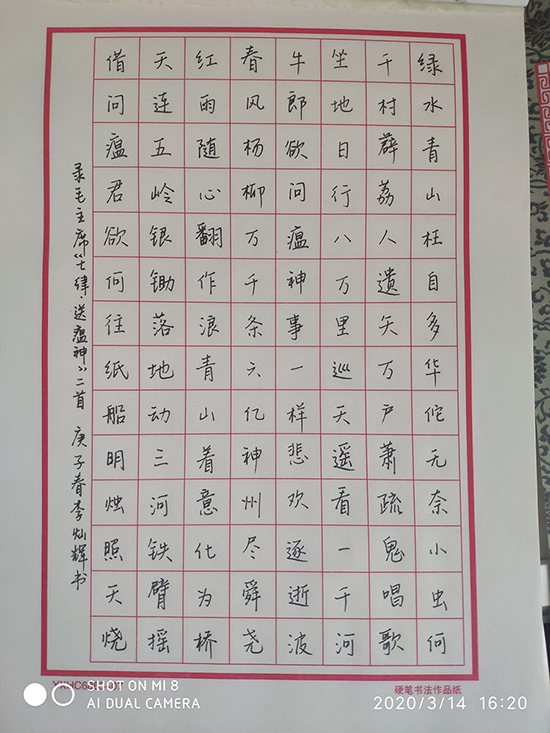 绿水青山枉自多华佗无奈小虫何
千村薜荔人遗矢万户萧疏鬼唱歌
坐地日行八万里巡天遥看一千河
牛郎欲问瘟神事一样悲欢逐逝波
春风杨柳万千条六亿神州尽舜尧
红雨随心翻作浪青山着意化为桥
天连五岭银锄落地动三河铁臂摇
借问瘟君欲何往纸船明烛照天烧
录毛主席《七律·送瘟神》二首 庚子春李灿辉书
硬笔书法作品纸
SHOT ON MI 8
AI DUAL CAMERA
2020/3/14 16:20